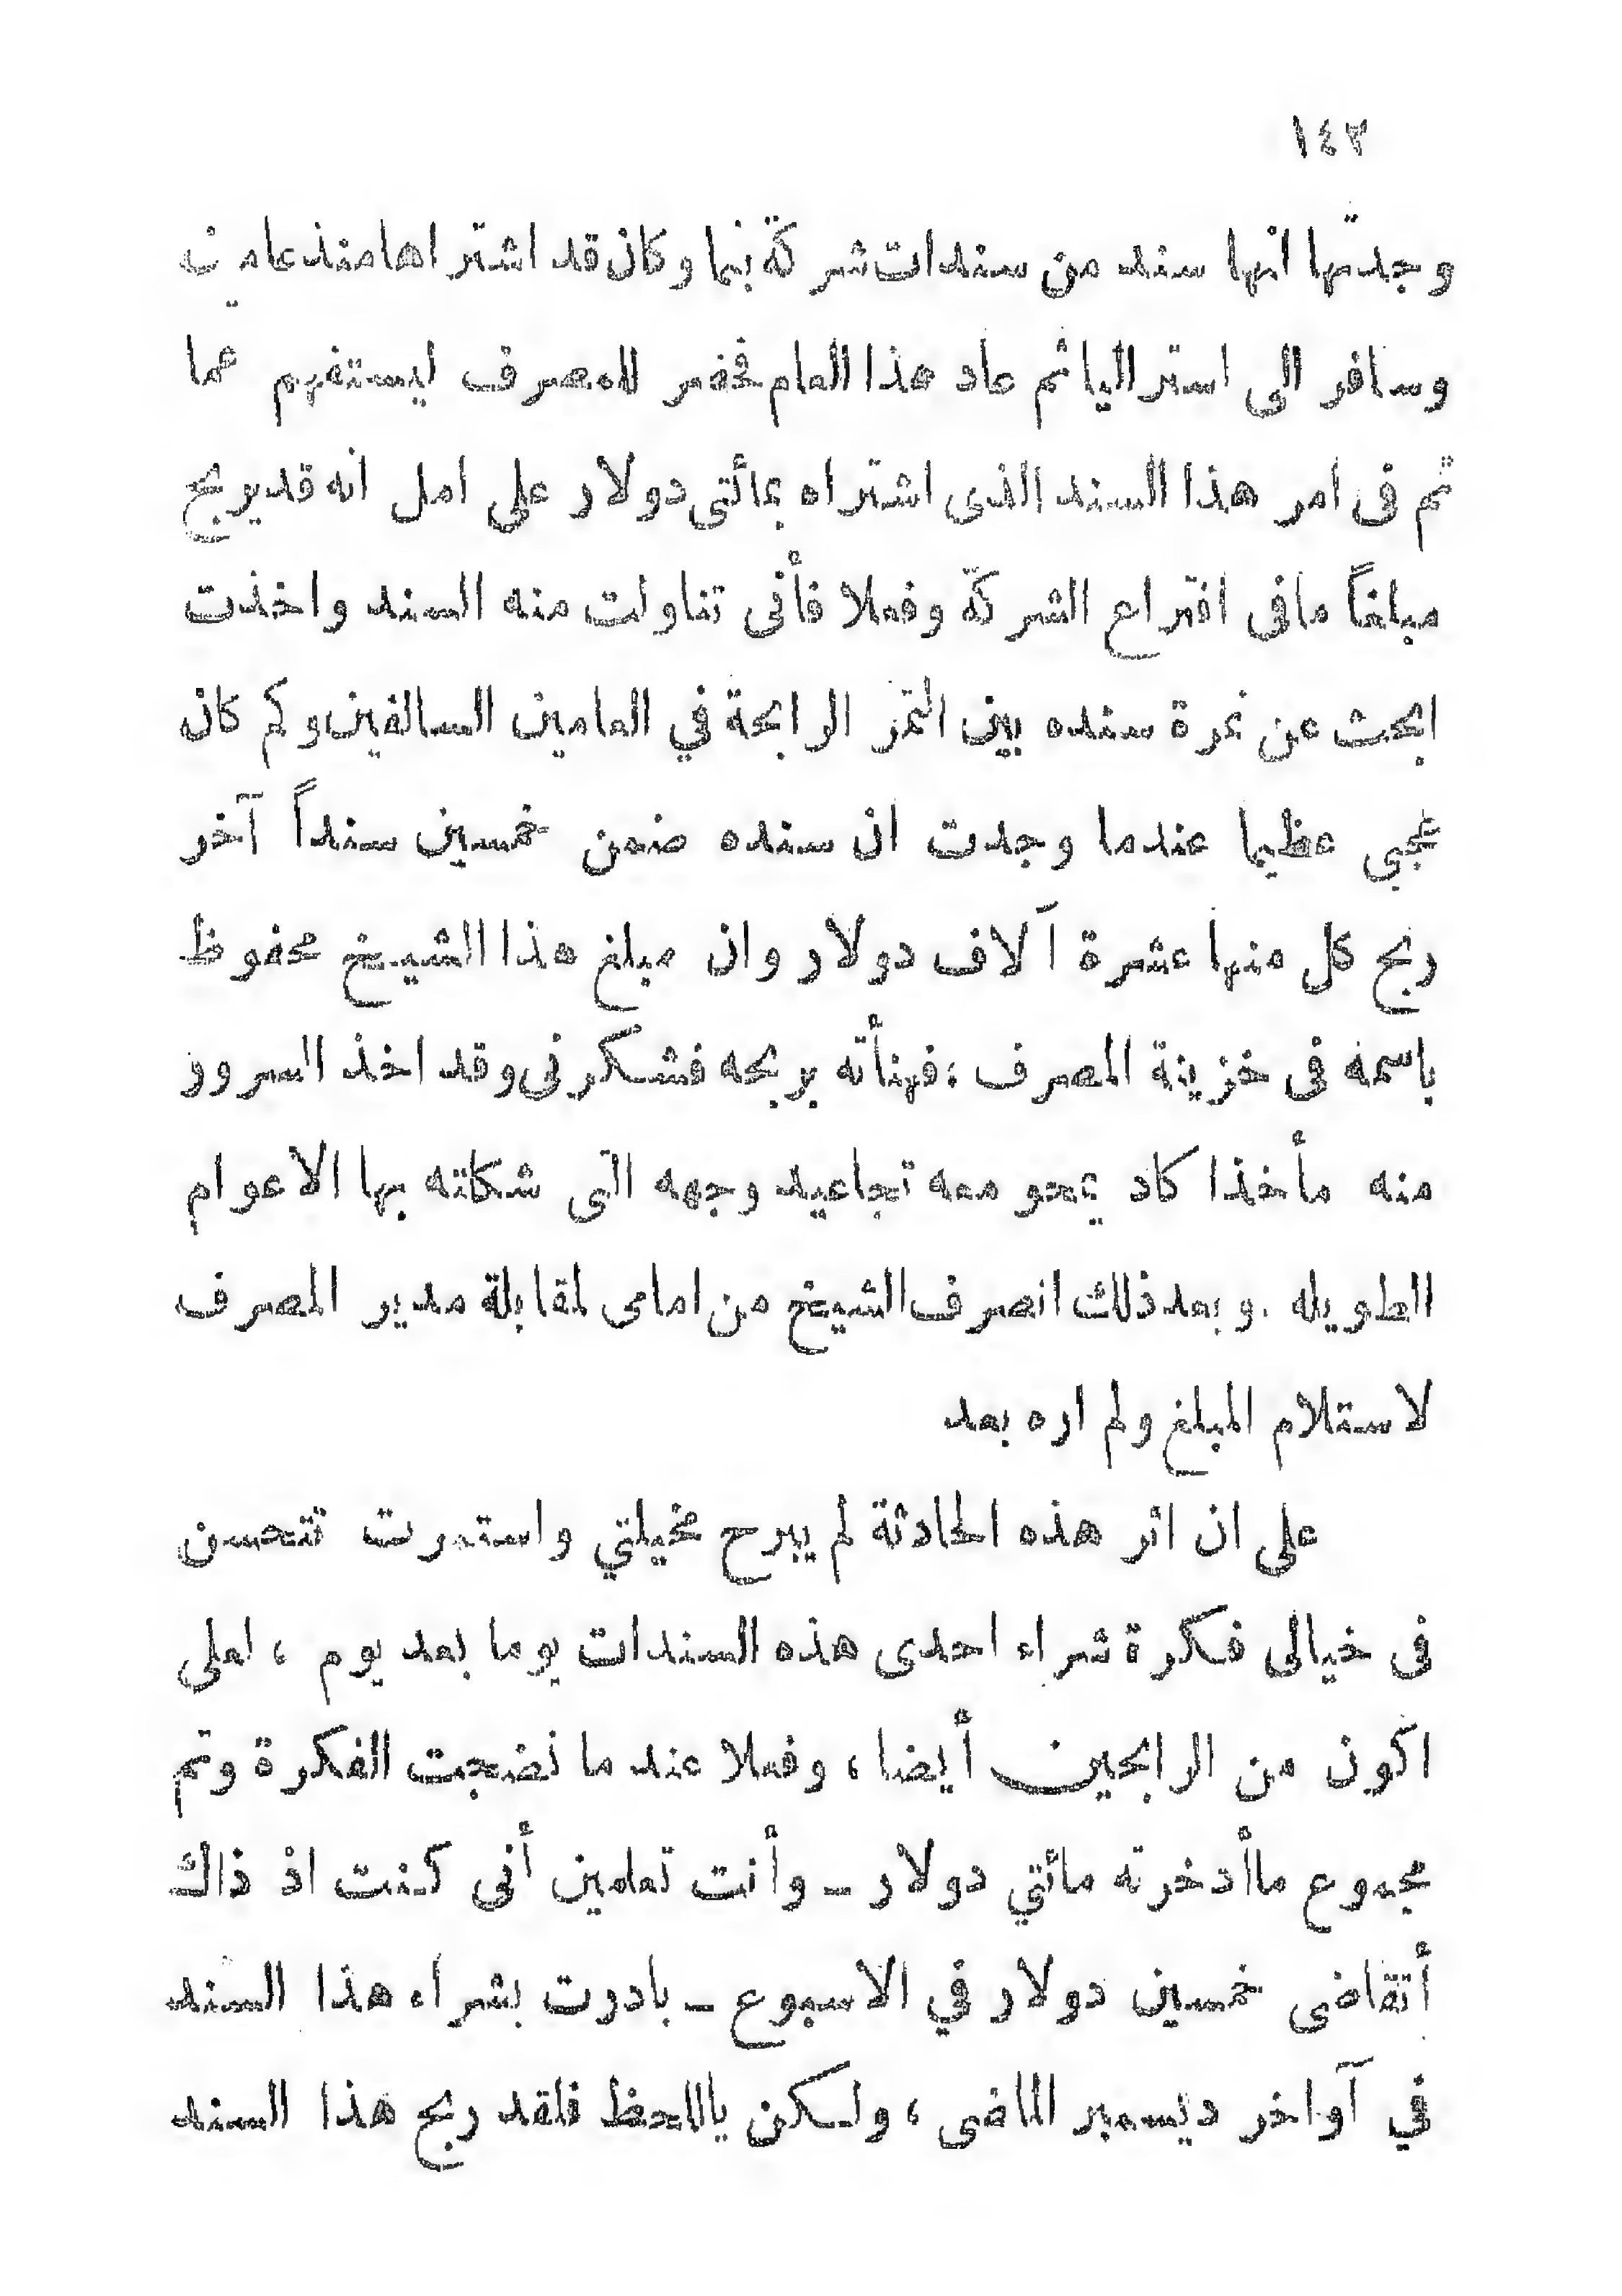 ١٤٢
وجدتها انها سند من سندات شركة بنما وكان قد اشتراها منذ عامين
وسافر الى استراليا ثم عاد هذا العام فحضر للمصرف ليستفهم عما
تم فى امر هذا السند الذى اشتراه بمائتى دولار على امل انه قد يربح
مبلغاً ما فى اقتراع الشركة وفعلا فأنى تناولت منه السند واخذت
ابحث عن نمرة سنده بين النمر الرابحة في العامين السالفين وكم كان
عجبى عظيما عندما وجدت ان سنده ضمن خمسين سنداً آخر
ربح كل منها عشرة آلاف دولار وان مبلغ هذا الشيخ محفوظ
باسمه فى خزينة المصرف ؛ فهنأته بربحه فشكرنى وقد اخذ السرور
منه مأخذا كاد يمحو معه تجاعيد وجهه التى شكلته بها الاعوام
الطويله . وبعد ذلك انصرف الشيخ من امامى لمقابلة مدير المصرف
لاستلام المبلغ ولم اره بعد
على ان اثر هذه الحادثة لم يبرح مخيلتي واستمرت تتحسن
فى خيالى فكرة شراء احدى هذه السندات يوما بعد يوم ، لعلى
اكون من الرابحين أيضا ، وفعلا عند ما نضجت الفكرة وتم
مجموع ماأدخرته مائتي دولار ــ وأنت تعلمين أنى كنت اذ ذاك
أتقاضى خمسين دولار في الاسبوع ــ بادرت بشراء هذا السند
في آواخر ديسمبر الماضى ، ولكن ياللحظ فلقد ربح هذا السند